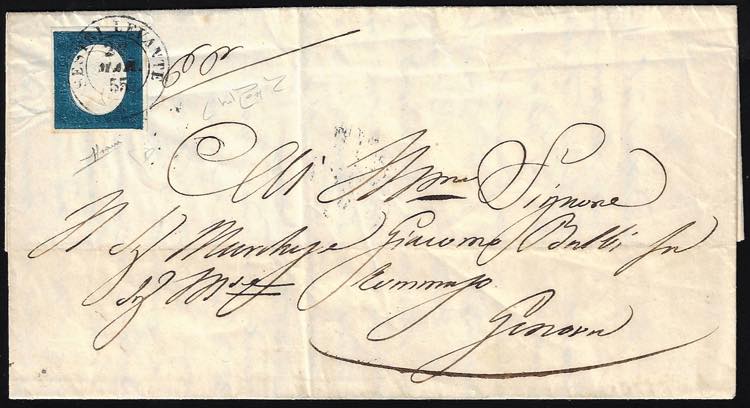 SESTRI LEVANTE
2
MAR.
55
All' Ill.mo Signore
Il Sig. Marchese Giacomo Balbi fu
Sig. M.se Tommaso
Genova